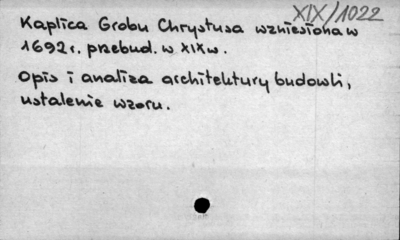 XIX/1022
Kaplica Grobu Chrystusa wzniesiona w
1692 r. przebud. w XIX w.
Opis i analiza architektury budowli,
ustalenie wzoru.